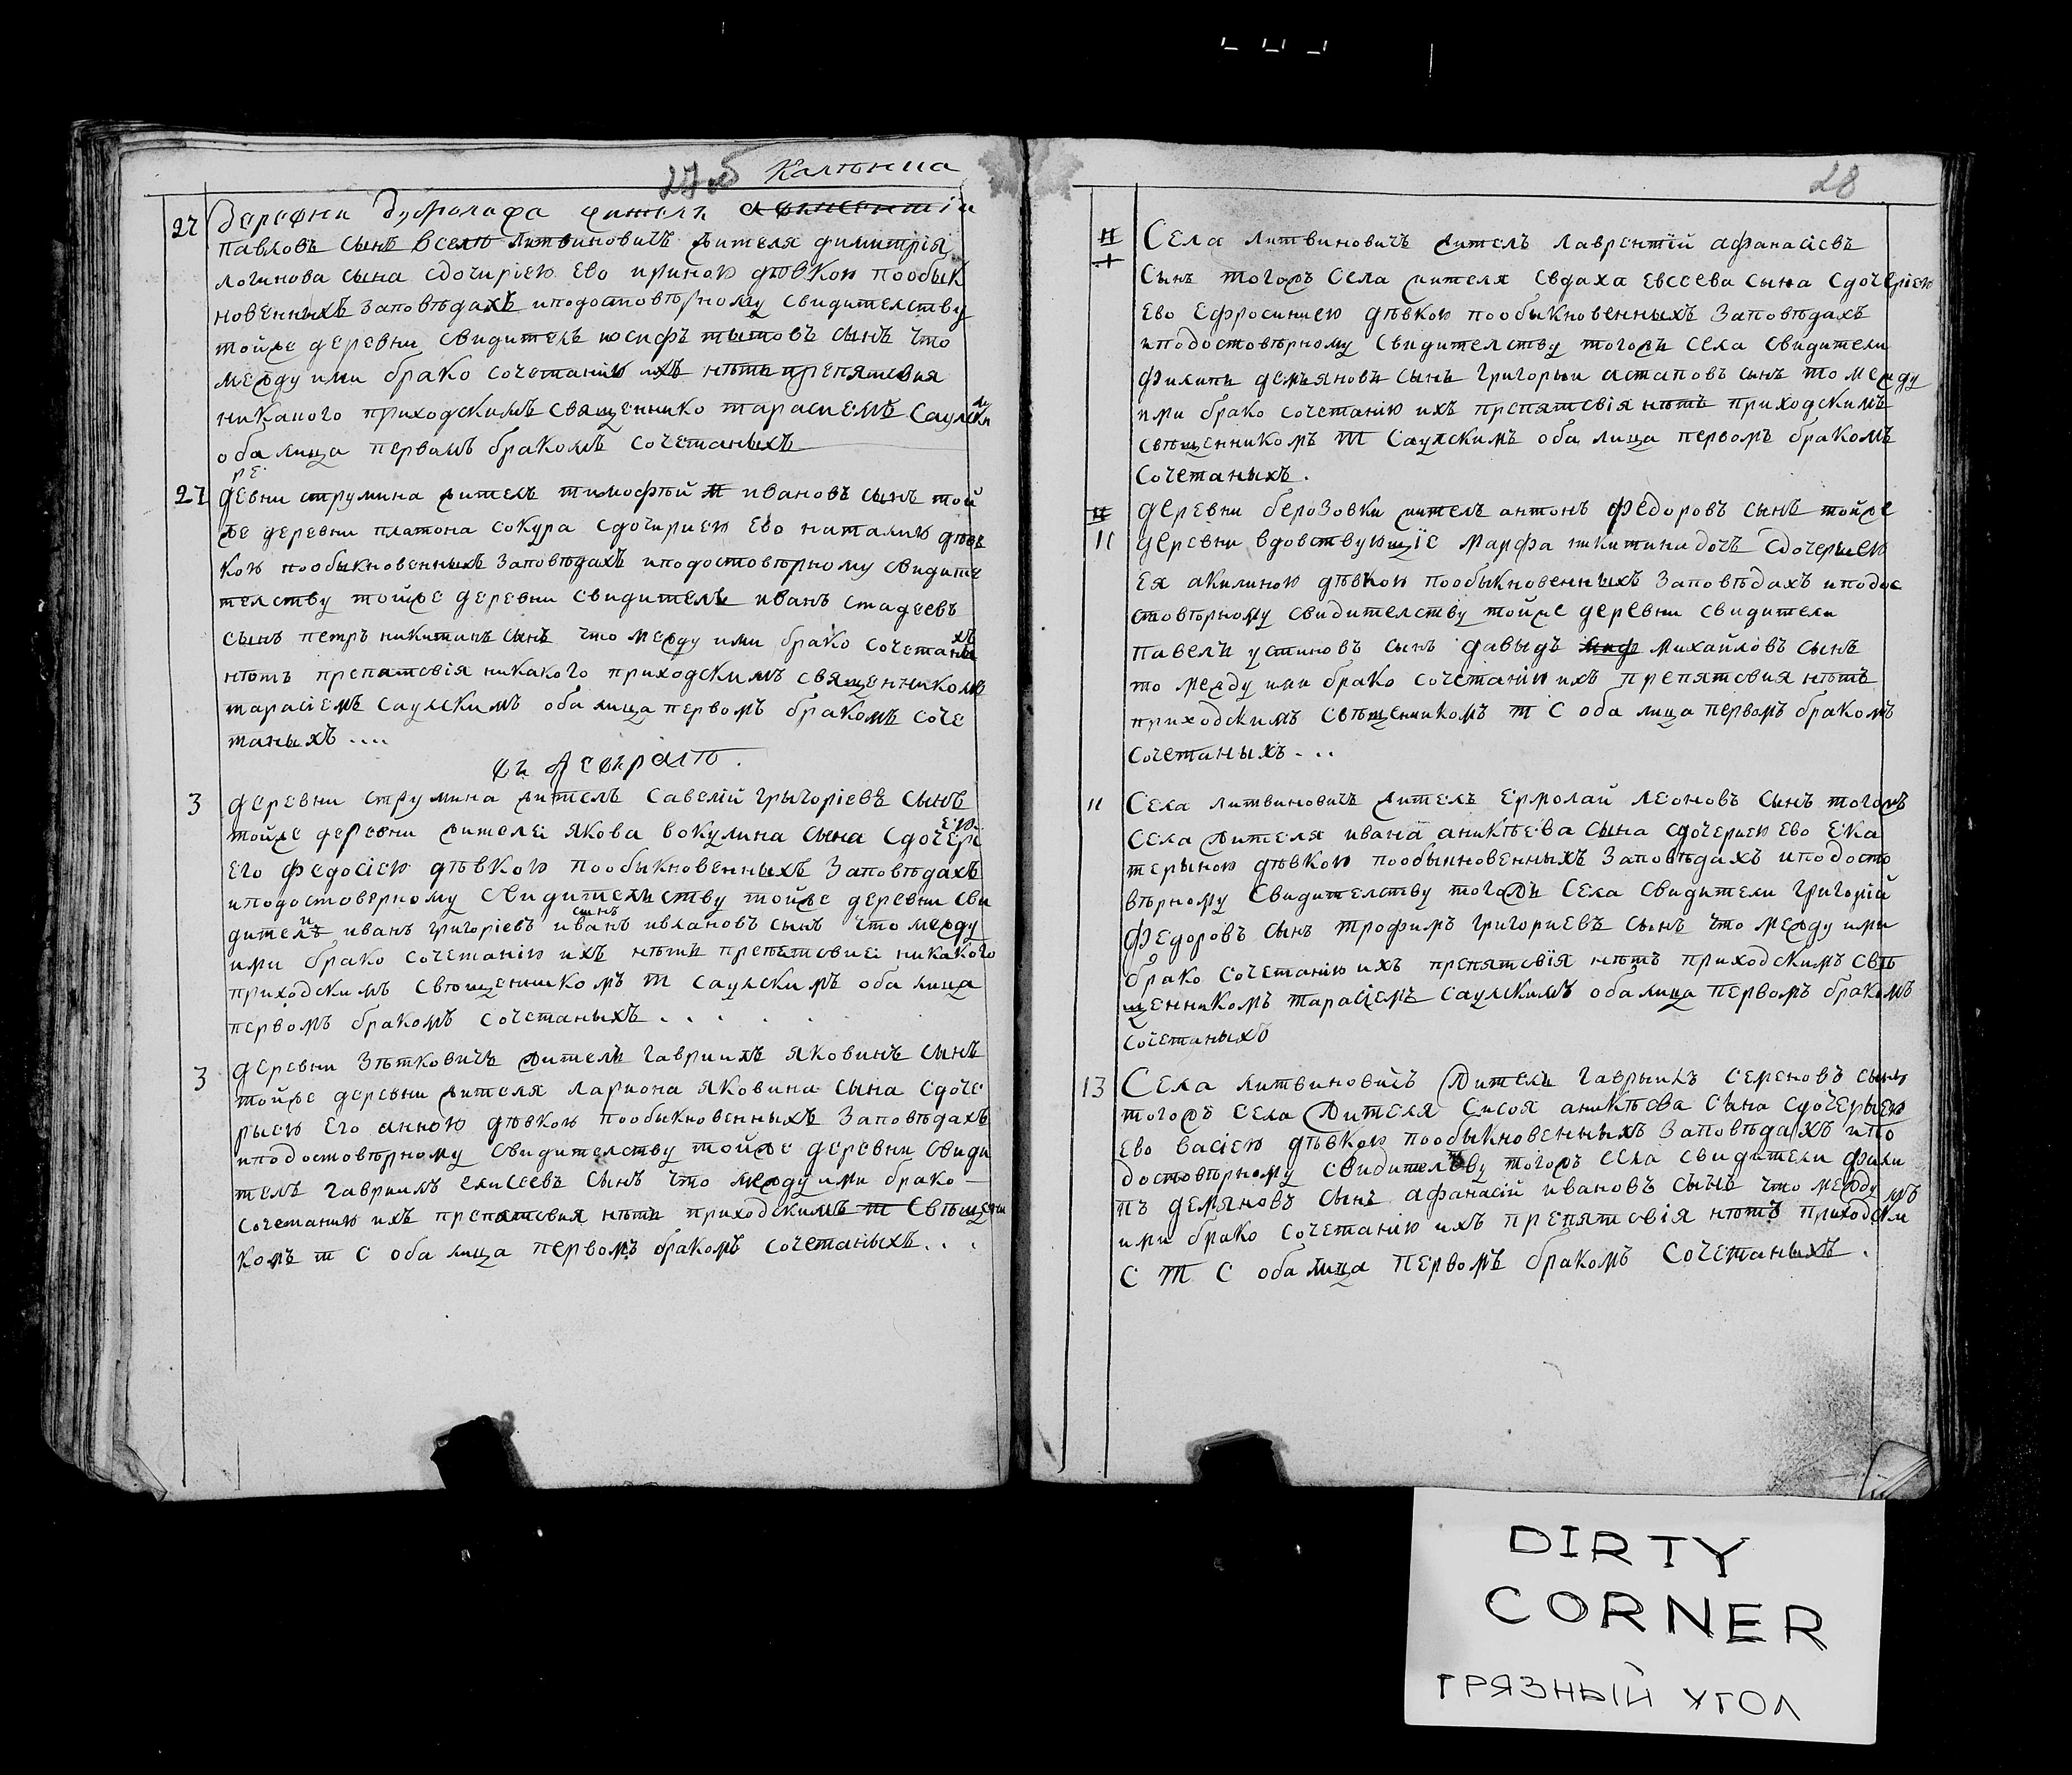 27 об Калюжица
27 деревни Дубролева жител аѳанасий
павловъ сынъ Вселѣ литвиновичъ жителя димитрія
логинова сына сдочиріею Ево ириною дѣвкою пообык
новенныхъ заповѣдахъ иподостовѣрному свидителству
тойже деревни свидитель иосифъ титовъ сынъ что
между ими брако сочетанію ихъ нѣтъ препятсвия
никакого приходскимъ священнико тарасиемъ Саулски
оба лица первомъ бракомъ сочетаныхъ
27 деревни струмина жителъ тимофѣй ивановъ сынъ той
же деревни платона сокура сдочириею Ево наталию дѣв
кою пообыкновенныхъ заповѣдахъ иподостовѣрному свидите
телству тойже деревни свидителъ иванъ стадеевъ
сынъ петръ никитинъ сынъ что между ими брако сочетаныхъ
нѣтъ препятсвія никакого приходскимъ священникомъ
тарасіемъ саулскимъ оба лица первомъ бракомъ соче
таныхъ ....
въ Ѳевралѣ .
3 деревни струмина жителъ савелій грыгоріевъ сынъ
тойже деревни жителеі якова вокулина сына сдочеріею
Его Федосіею дѣвкою пообыкновенныхъ заповѣдахъ
иподостоверному свидителству тойже деревни сви
дители иванъ григоріевъ сынъ иванъ ивлановъ сынъ что между
ими брако сочетанію ихъ нѣтъ препятсвиеі никакого
приходскимъ свѣщенникомъ т саулскимъ оба лица
первомъ бракомъ сочетаныхъ . . . . . .
3 деревни Зѣтковичъ жителъ гавриилъ яковинъ сынъ
тойже деревни жителя лариона яковина сына сдоче
рыею Его анною дѣвкою пообыкновенныхъ заповѣдахъ
иподостовѣрному свидителству тойже деревни свиди
телъ гавриилъ елисеевъ сынъ что между ими брако
сочетанию ихъ препятсвия нѣтъ приходскимъ т свѣщени
комъ т с оба лица первомъ бракомъ сочетаныхъ . . .
28
Села литвиновичъ жителъ лаврентій афанасіевъ
сынъ тогожъ села жителя Евдаха Евсеева сына сдочеріею
Ево Ефросиниею дѣвкою пообыкновенныхъ заповѣдахъ
иподостовѣрному свидителству тогожъ села свидители
филипъ демьяновъ сынъ григорыи астаповъ сынъ то между
ими брако сочетанію ихъ препятсвія нѣтъ приходскимъ
свѣщенникомъ т саулскимъ оба лица первомъ бракомъ
сочетаныхъ .
11 деревни берозовки жителъ антонъ федоровъ сынъ тойже
деревни вдовствующіе марфа никитина дочь сдочерыею
Ея акилиною дѣвкою пообыкновенныхъ заповѣдахъ иподос
стовѣрному свидителству тойже деревни свидители
павелъ устиновъ сынъ давыдъ михайловъ сынъ
то между ими брако сочетанію ихъ препятсвия нѣтъ
приходскимъ свѣщенникомъ т с оба лица первомъ бракомъ
сочетаныхъ . . .
11 Села литвиновичъ жителъ Ермолай леоновъ сынъ тогожъ
села жителя ивана аникѣева сына сдочериею Ево Ека
терыною дѣвкою пообыкновенныхъ заповѣдахъ иподосто
вѣрному свидителству тогожъ села свидители григорій
Федоровъ сынъ трофимъ григориевъ сынъ что между ими
брако сочетанию ихъ препятсвія нѣтъ приходскимъ свѣ
щенникомъ тарасіемъ саулскимъ оба лица первомъ бракомъ
сочетаныхъ
13 Села литвиновичъ жителъ гаврыилъ сереновъ сынъ
тогожъ села жителя Сисоя аникѣева сына сдочерыею
Ево васіею дѣвкою пообыкновеныхъ заповѣдахъ ипо
достовѣрному свидителству тогожъ села свидители фили
пъ демяновъ сынъ афанасій ивановъ сынъ что между
ими брако сочетанію ихъ препятсвія нѣтъ приходскимъ
с т с оба лица первомъ бракомъ сочетаныхъ .
DIRTY
CORNER
ГРЯЗНЫЙ УГОЛ